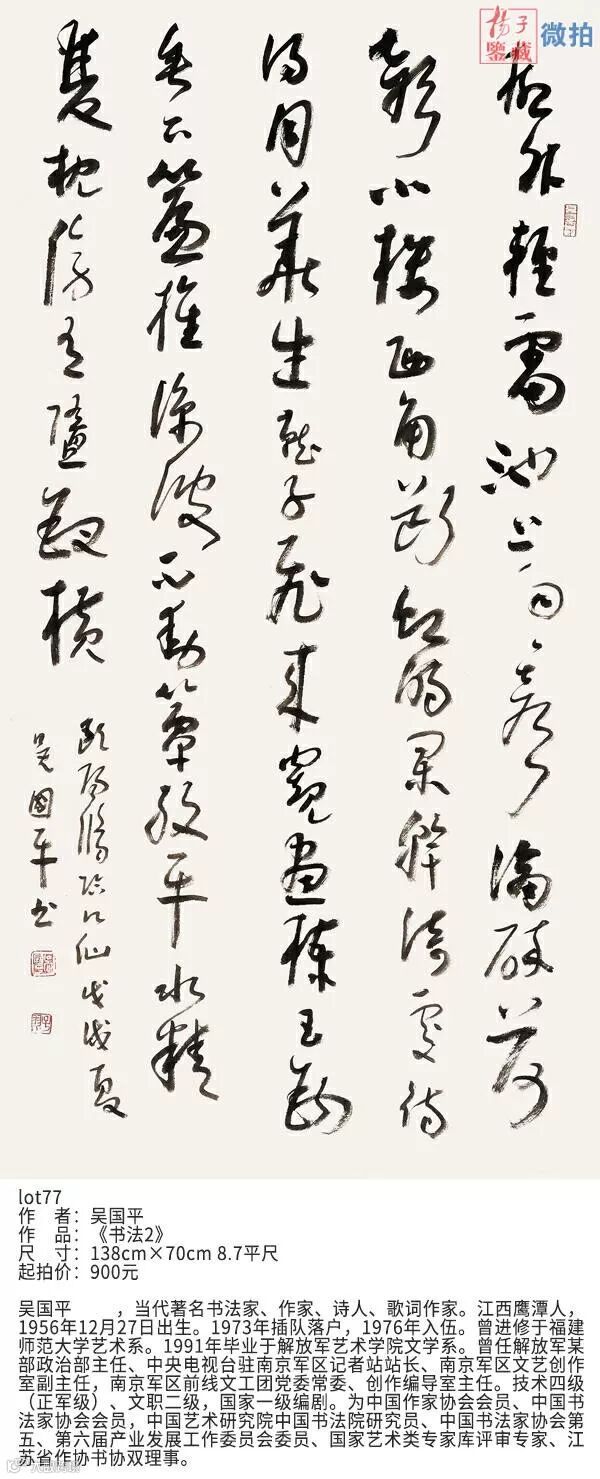 揚子鑒藏 微拍
柳外輕雷池上雨雨聲滴碎荷
聲小樓西角斷虹明闌幹倚處待
得月華生燕子飛來窺畫棟玉鉤
垂下簾旌涼波不動簟紋平水精
雙枕傍有墮釵橫
歐陽脩臨江仙戊戌夏
吳國平书
lot77
作 者：吴国平
作 品：《书法2》
尺 寸：138cm×70cm 8.7平尺
起拍价：900元
吴国平 ，当代著名书法家、作家、诗人、歌词作家。江西鹰潭人，
1956年12月27日出生。1973年插队落户，1976年入伍。曾进修于福建
师范大学艺术系。1991年毕业于解放军艺术学院文学系。曾任解放军某
部政治部主任、中央电视台驻南京军区记者站站长、南京军区文艺创作
室副主任，南京军区前线文工团党委常委、创作编导室主任。技术四级
（正军级）、文职二级，国家一级编剧。为中国作家协会会员、中国书
法家协会会员，中国艺术研究院中国书法院研究员、中国书法家协会第
五、第六届产业发展工作委员会委员、国家艺术类专家库评审专家、江
苏省作协书协双理事。